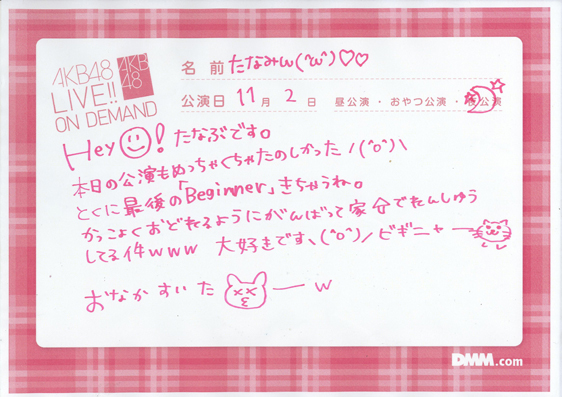 AKB48
LIVE!!
ON DEMAND
AKB
48
名前 たなみん(^ω^)♡♡
公演日 11月2日 昼公演・おやつ公演・夜公演
Hey! たなぶです。
本日の公演もめっちゃくちゃたのしかった/(^o^)\
とくに最後の「Beginner」きちゃうね。
かっこよくおどれるようにがんばって家今でたんしゅう
してる件www 大好きです、(^o^)/ビギニャー
おなかすいた ーw
DMM.com